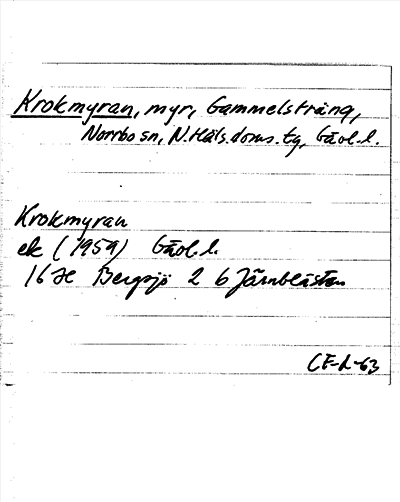 Krokmyran, myr, Gammelsträng,
Norrbo sn, N. Häls. doms. tg, Gävl. l.
Krokmyran
ek (1959) Gävl. l.
16 H Bergsjö 2 b Järnblästen
CE-L-63